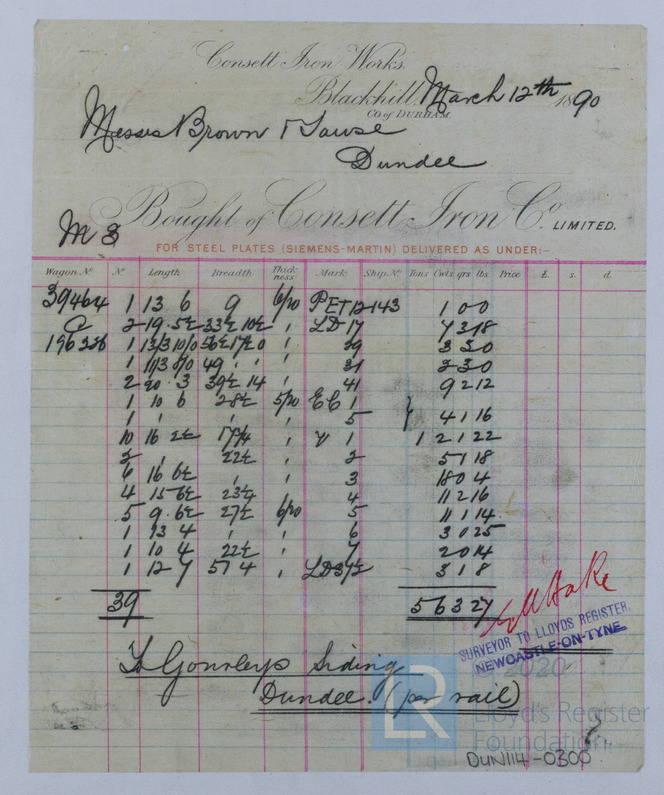 Consett Iron Works.
Blackhill, March 12th 1890
CO. of DURHAM.
Messrs Brown & 
Dundee
M 3
Bought of Consett Iron Co. LIMITED.
FOR STEEL PLATES (SIEMENS-MARTIN) DELIVERED AS UNDER:-
Wagon No No Length Breadth Thickness Mark Ship No Tons Cwts qrs lbs Price £ s. d.
39464 1 13 6 9 6/20 PET 12 143 1 0 0
C 2 19 .5½ 33½ 10½ " LD 17 7 3 18
196 226 1 29 3 3 0
1 49 " " " 31 2 3 0
2 20 . 3 39½ 14 " 41 9 2 12
1 10 6 28½ 5/20 EC 1
1 " " " 5 4 1 16
10 16 2½ " " 1 1 2 1 22
2 " 22½ " 2 5 1 18
16 6½ " " 3 18 0 4
4 15 6½ 23½ " 4 11 2 16
5 9 . 6½ 27½ 6/20 5 11 1 14
1 13 4 " " 6 3 0 25
1 10 4 22½ " 7 2 0 14
1 12 7 57 4 " LD 3 1 8
39 5 6 3 27
To Gourleys Siding
Dundee. (per rail)
SURVEYOR TO LLOYDS REGISTER,
NEWCASTLE-ON-TYNE.
LR
2020
Lloyd's Register
Foundation
DUN114-0300